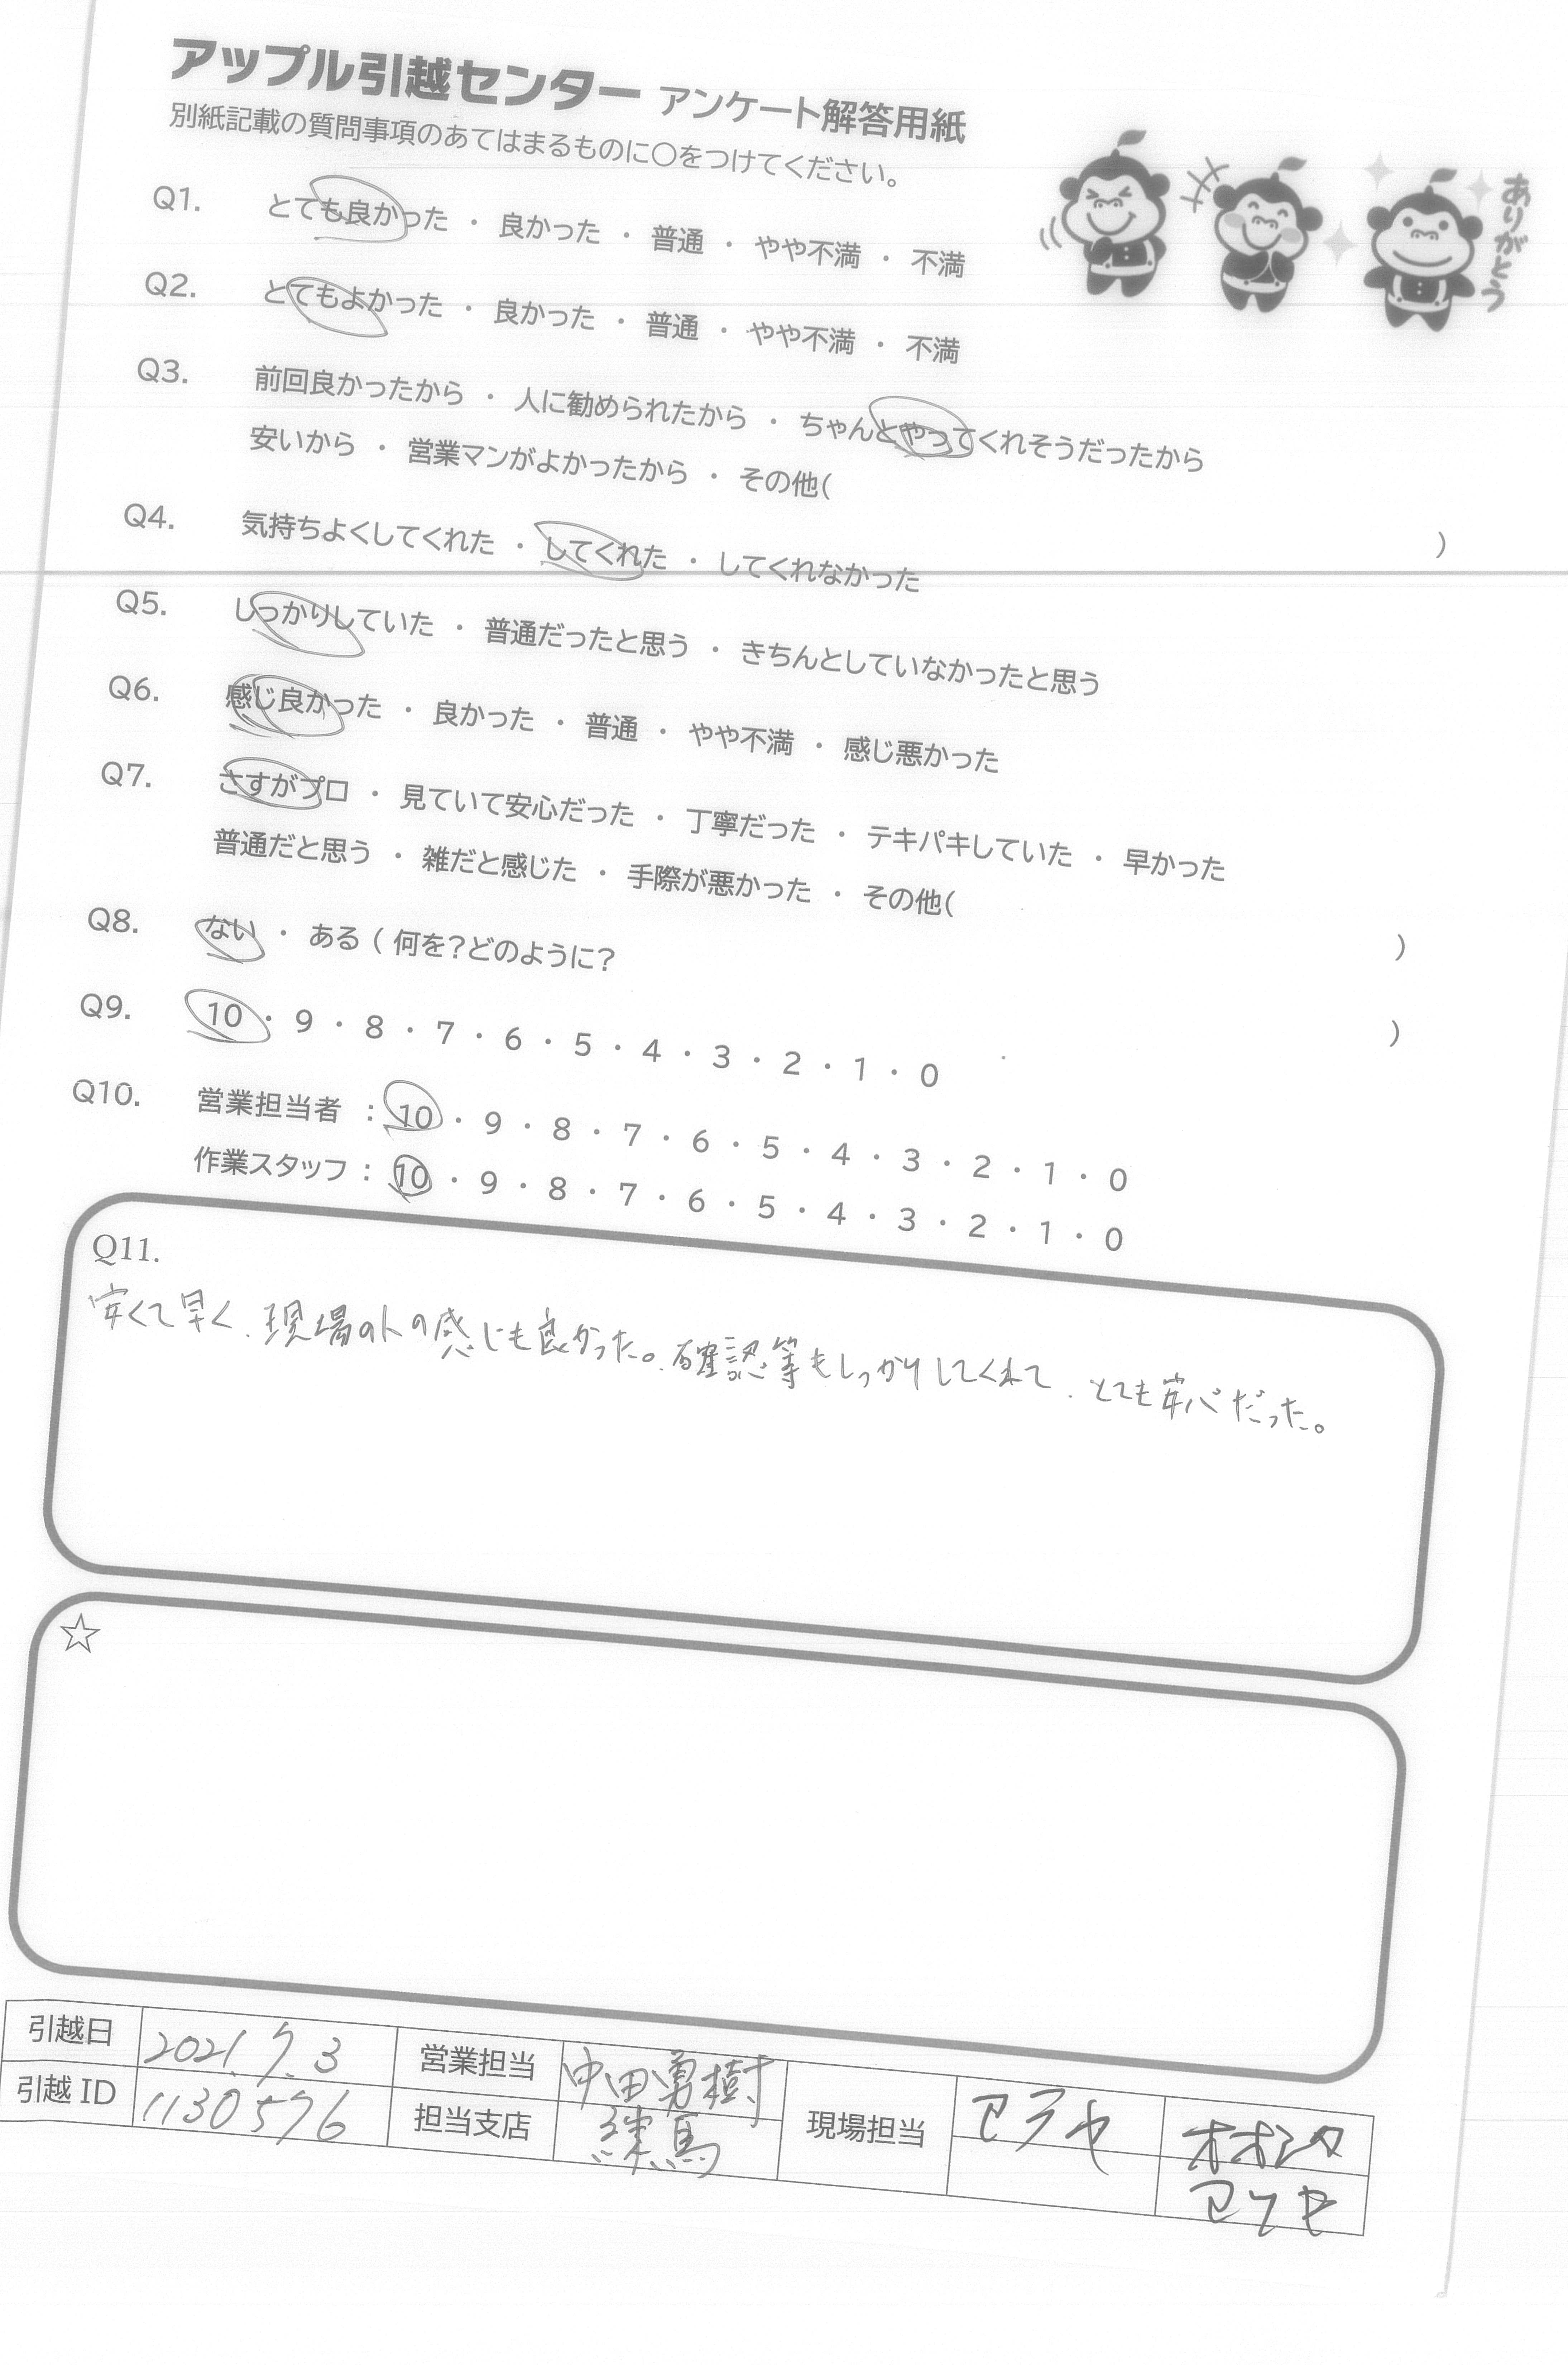 アップル引越センター アンケート解答用紙
別紙記載の質問事項のあてはまるものに○をつけてください。
ありがとう
Q1. とても良かった ・ 良かった ・ 普通 ・ やや不満 ・ 不満
Q2. とてもよかった ・ 良かった ・ 普通 ・ やや不満 ・ 不満
Q3. 前回良かったから ・ 人に勧められたから ・ ちゃんとやってくれそうだったから
安いから ・ 営業マンがよかったから ・ その他( )
Q4. 気持ちよくしてくれた ・ してくれた ・ してくれなかった
Q5. しっかりしていた ・ 普通だったと思う ・ きちんとしていなかったと思う
Q6. 感じ良かった ・ 良かった ・ 普通 ・ やや不満 ・ 感じ悪かった
Q7. さすがプロ ・ 見ていて安心だった ・ 丁寧だった ・ テキパキしていた ・ 早かった
普通だと思う ・ 雑だと感じた ・ 手際が悪かった ・ その他( )
Q8. ない ・ ある ( 何を?どのように? )
Q9. 10 ・ 9 ・ 8 ・ 7 ・ 6 ・ 5 ・ 4 ・ 3 ・ 2 ・ 1 ・ 0
Q10. 営業担当者 : 10 ・ 9 ・ 8 ・ 7 ・ 6 ・ 5 ・ 4 ・ 3 ・ 2 ・ 1 ・ 0
作業スタッフ : 10 ・ 9 ・ 8 ・ 7 ・ 6 ・ 5 ・ 4 ・ 3 ・ 2 ・ 1 ・ 0
Q11.
安くて早く、現場の人の感じも良かった。確認等もしっかりしてくれて、とても安心だった。
☆
引越日 2021.7.3 営業担当 中田勇樹
引越 ID 1130576 担当支店 練馬 現場担当